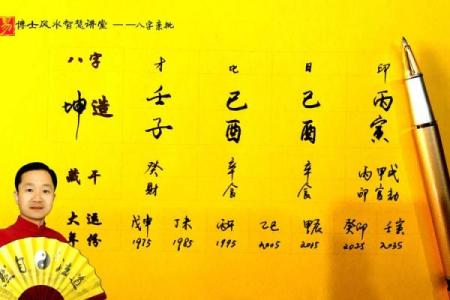 易 博士风水智慧讲堂 ——八字亲批
八字 才 比 日 印
坤造 壬 己 己 丙
子 酉 酉 寅
藏干 癸 辛 辛 丙 甲 戊
财 食 食 印 官 劫
大运 戊申 丁未 丙午 乙巳 甲辰 癸卯 壬寅
年份 1975 1985 1995 2005 2015 2025 2035
然自法道